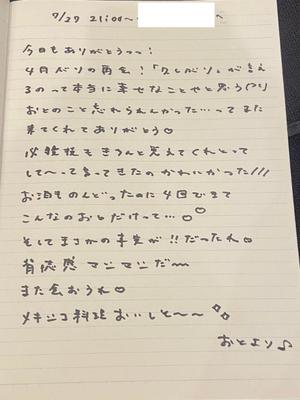 7/27 21:00〜
今日もありがとうっっ!
4月ぶりの再会!「久しぶり」が言え
るのって本当に幸せなことやと思う
おとのこと忘れられんかった…ってまた
来てくれてありがとう♡
必殺技もきちんと覚えてくれとって
して〜って言ってきたのかわいかった!!!
お酒ものんどったのに4回でまで
こんなのおとだけって…♡
そしてまさかの事実が!!だったね♡
背徳感マシマシだ〜
また会おうね♡
メキシコ料理おいしそ〜〜
おとより♪